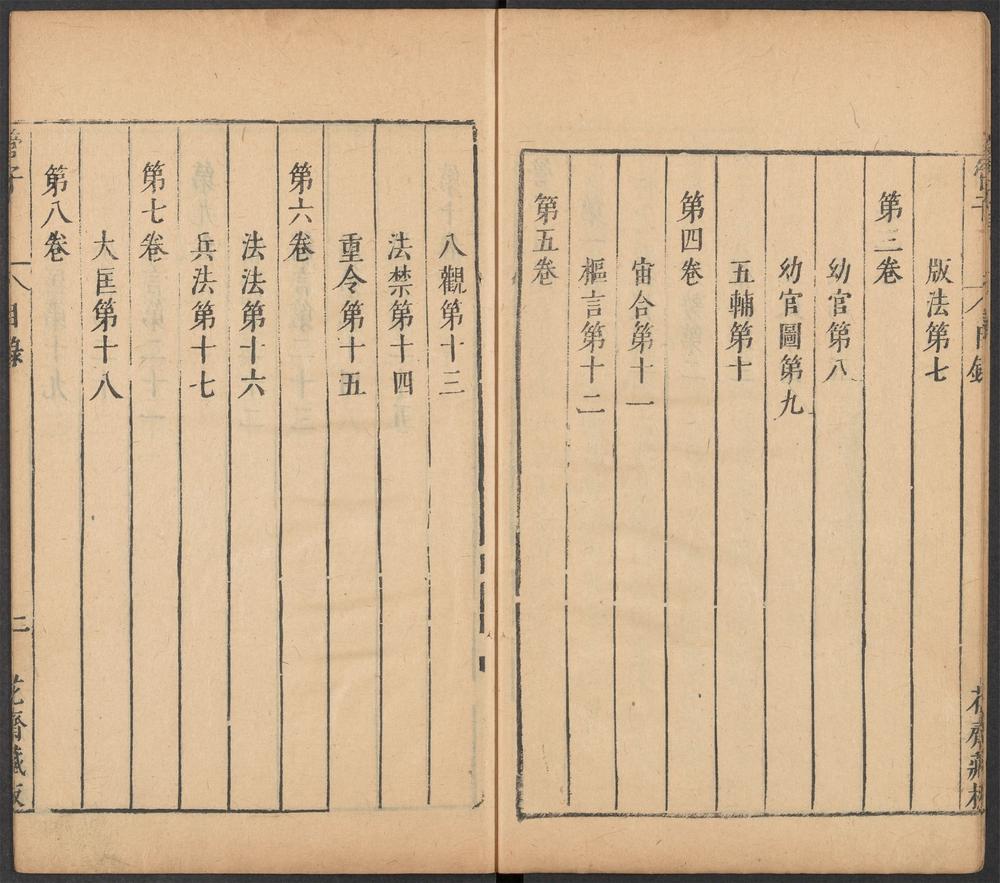 版法第七
第三卷
幼官第八
幼官圖第九
五輔第十
第四卷
宙合第十一
樞言第十二
第五卷
八觀第十三
法禁第十四
重令第十五
第六卷
法法第十六
兵法第十七
第七卷
大匡第十八
第八卷
管子
目錄
二
花齋藏板